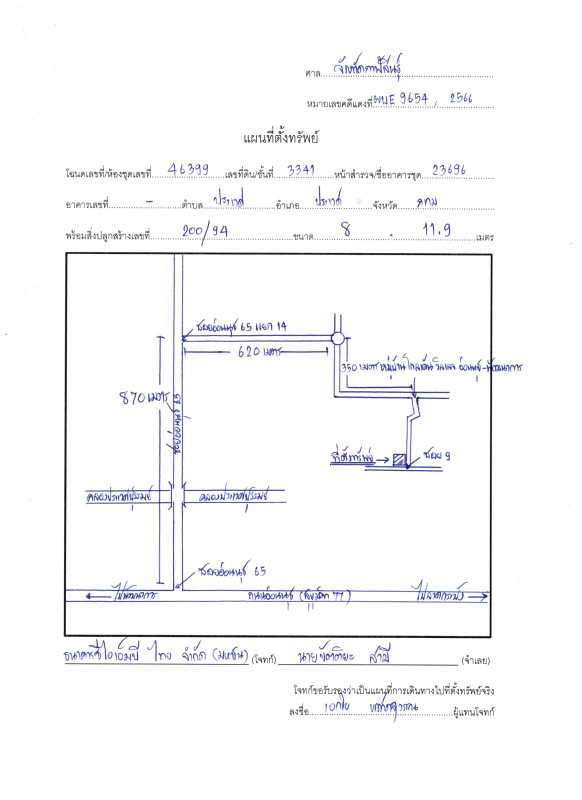 ศาล จังหวัดกาฬสินธุ์
หมายเลขคดีแดงที่ ผบE 9654 / 2566
แผนที่ตั้งทรัพย์
โฉนดเลขที่/ห้องชุดเลขที่ 46399 เลขที่ดิน/ชั้นที่ 3341 หน้าสำรวจ/ชื่ออาคารชุด 23696
อาคารเลขที่ - ตำบล ประเวศ อำเภอ ประเวศ จังหวัด กทม
พร้อมสิ่งปลูกสร้างเลขที่ 200/94 ขนาด 8 * 11.9 เมตร
ซอยอ่อนนุช 65 แยก 14
620 เมตร
350 เมตร หมู่บ้าน โกลเด้น วิลเลจ อ่อนนุช-พัฒนาการ
870 เมตร
ซอยอ่อนนุช 65
ที่ตั้งทรัพย์
ซอย 9
คลองประเวศบุรีรมย์
คลองประเวศบุรีรมย์
ซอยอ่อนนุช 65
ไปพัฒนาการ
ถนนอ่อนนุช (สุขุมวิท 77)
ไปลาดกระบัง
ธนาคารซีไอเอ็มบี ไทย จำกัด (มหาชน) (โจทก์) นาย สามี (จำเลย)
โจทก์ขอรับรองว่าเป็นแผนที่การเดินทางไปที่ตั้งทรัพย์จริง
ลงชื่อ ผู้แทนโจทก์